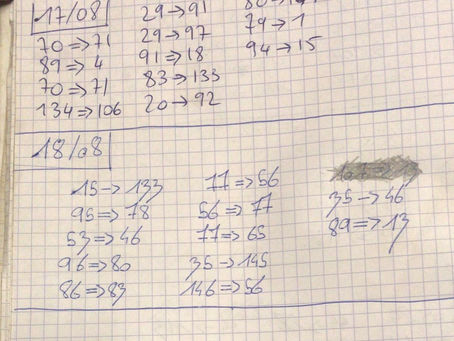 17/08
70 => 71
89 => 4
70 => 71
134 => 106
29 → 91
29 → 97
91 → 18
83 → 133
20 → 92
79 → 1
94 → 15
18/08
15 → 133
95 => 78
53 => 46
96 => 80
86 => 83
77 => 56
56 => 77
77 => 65
35 → 145
146 => 56
35 → 46
89 => 13